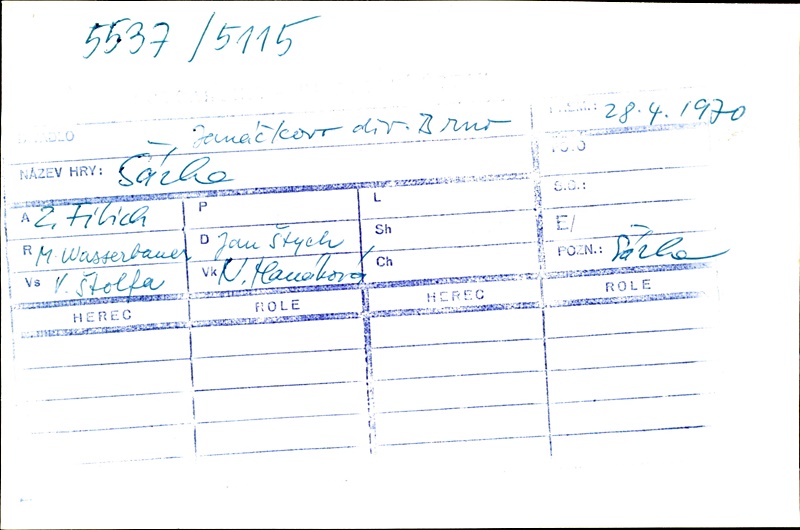 5537/5115
Janáčkovo div. Brno 28.4.1970
NÁZEV HRY: Šárka
A Z. Fibich P L S.O.:
R M. Wasserbauer D Jan Štych Sh E/
Vs V. Štolfa Vk N. Hanáková Ch POZN.: Šárka
HEREC ROLE HEREC ROLE